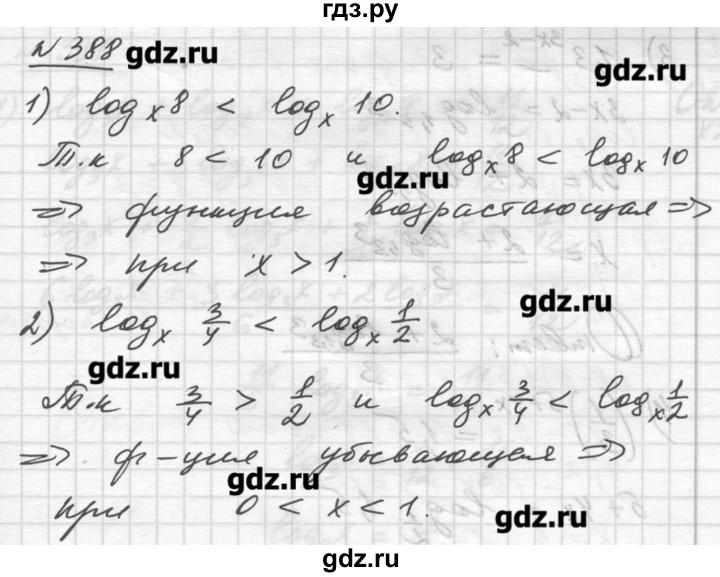 гдз.ру
N 388 gdz.ru
gdz.ru
1) log_x 8 < log_x 10.
Т.к 8 < 10 и log_x 8 < log_x 10
gdz.ru
=> функция возрастающая =>
=> при x > 1.
gdz.ru
2) log_x 3/4 < log_x 1/2
gdz.ru
Т.к 3/4 > 1/2 и log_x 3/4 < log_x 1/2
=> ф-ция убывающая =>
gdz.ru
при 0 < x < 1.
gdz.ru
gdz.ru